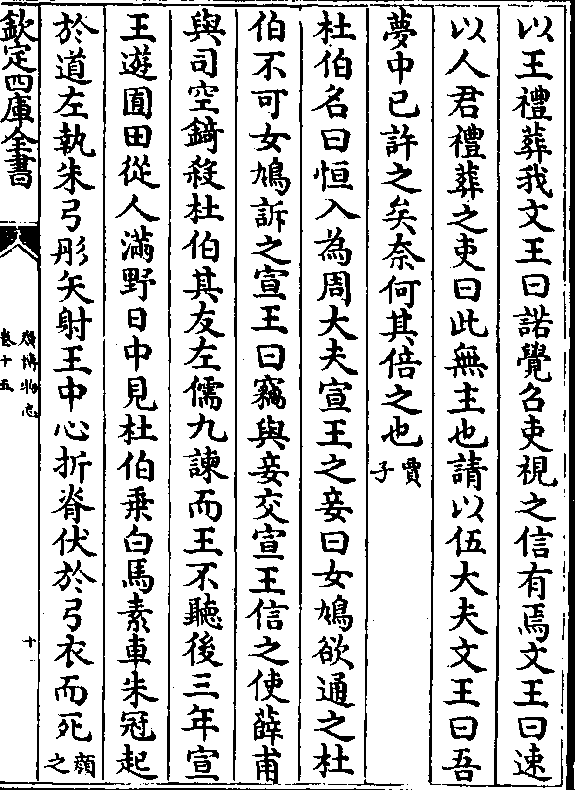 以王禮葬我文王曰諾覺召吏視之信有焉文王曰速
以人君禮葬之吏曰此無主也請以伍大夫文王曰吾
夢中已許之矣奈何其倍之也賈子
杜伯名曰恒入為周大夫宣王之妾曰女鳩欲通之杜
伯不可女鳩訴之宣王曰竊與妾交宣王信之使薛甫
與司空錡殺杜伯其友左儒九諫而王不聽後三年宣
王遊圃田從人滿野日中見杜伯乗白馬素車朱冠起
於道左執朱弓彤矢射王中心折脊伏於弓衣而死顔之
欽定四庫全書
廣博物志
卷十五
十